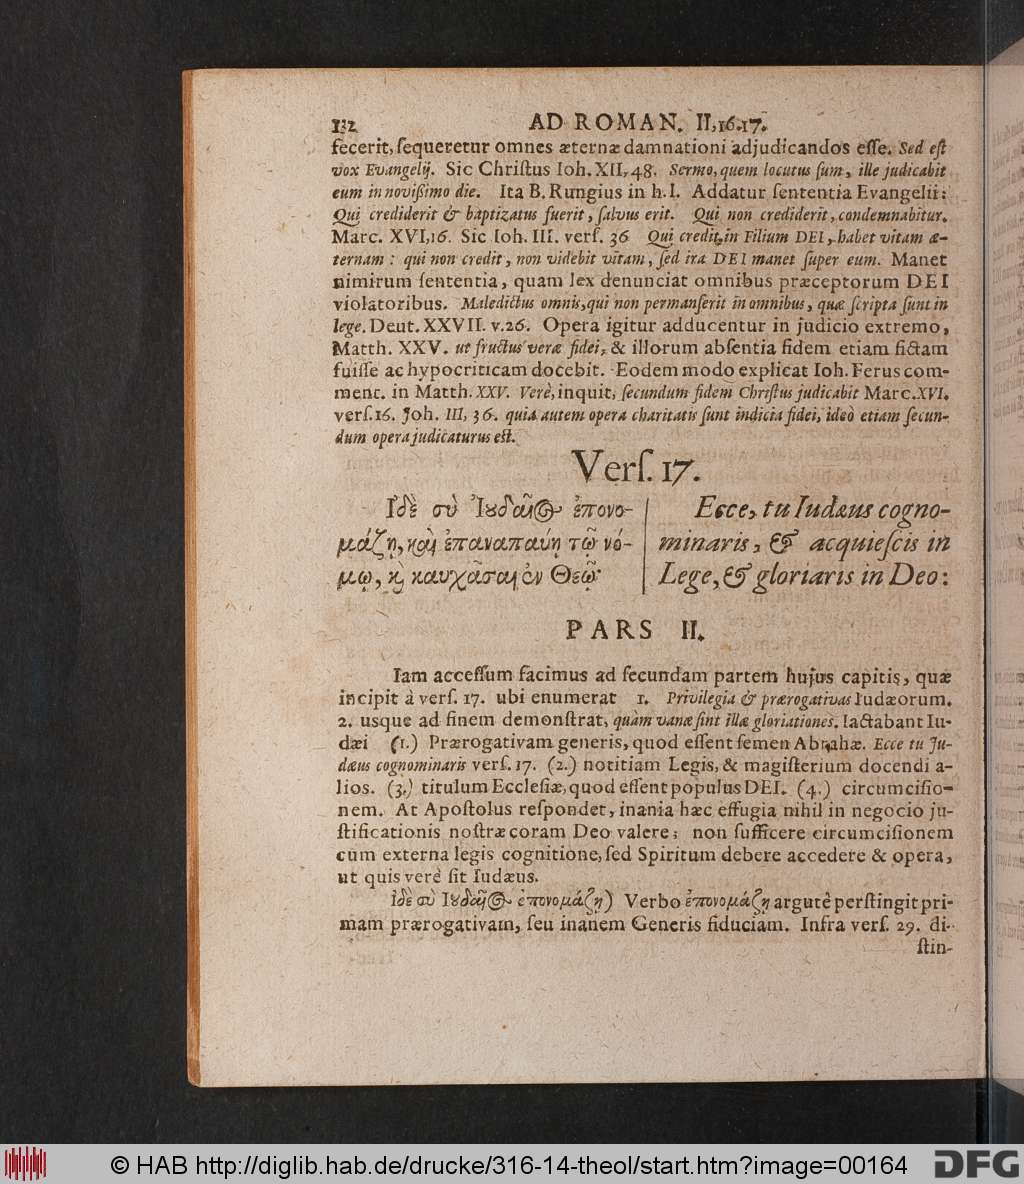 132 AD ROMAN. II,16.17.
fecerit, ſequeretur omnes æternæ damnationi adjudicandos eſſe. Sed eſt
vox Evangelij. Sic Chriſtus Ioh. XII, 48. Sermo, quem locutus ſum, ille judicabit
eum in noviſſimo die. Ita B. Rungius in h. l. Addatur ſententia Evangelii:
Qui crediderit & baptizatus fuerit, ſalvus erit. Qui non crediderit, condemnabitur.
Marc. XVI,16. Sic Ioh. III. verſ. 36 Qui credit in Filium DEI, habet vitam æ-
ternam: qui non credit, non videbit vitam, ſed ira DEI manet ſuper eum. Manet
nimirum ſententia, quam lex denunciat omnibus præceptorum DEI
violatoribus. Maledictus omnis, qui non permanſerit in omnibus, quæ ſcripta ſunt in
lege. Deut. XXVII. v. 26. Opera igitur adducentur in judicio extremo,
Matth. XXV. ut fructus veræ fidei, & illorum abſentia fidem etiam fictam
fuiſſe ac hypocriticam docebit. Eodem modo explicat Ioh. Ferus com-
ment. in Matth. XXV. Verè, inquit, ſecundum fidem Chriſtus judicabit Marc. XVI.
verſ. 16. Joh. III, 36. quia autem opera charitatis ſunt indicia fidei, ideò etiam ſecun-
dum opera judicaturus eſt.
Verſ. 17.
Ἰδὲ σὺ Ἰουδαῖος ἐπονο-
μάζῃ, καὶ ἐπαναπαύῃ τῷ νό-
μῳ, κὶ καυχᾶσαι ἐν Θεῷ·
Ecce, tu Iudæus cogno-
minaris, & acquieſcis in
Lege, & gloriaris in Deo:
PARS II.
Iam acceſſum facimus ad ſecundam partem hujus capitis, quæ
incipit à verſ. 17. ubi enumerat 1. Privilegia & prærogativas Iudæorum.
2. usque ad finem demonſtrat, quàm vanæ ſint illæ gloriationes. Iactabant Iu-
dæi (1.) Prærogativam generis, quod eſſent ſemen Abrahæ. Ecce tu Ju-
dæus cognominaris verſ. 17. (2.) notitiam Legis, & magiſterium docendi a-
lios. (3.) titulum Eccleſiæ, quod eſſent populus DEI. (4.) circumciſio-
nem. At Apoſtolus reſpondet, inania hæc effugia nihil in negocio ju-
ſtificationis noſtræ coram Deo valere; non ſufficere circumciſionem
cum externa legis cognitione, ſed Spiritum debere accedere & opera,
ut quis verè ſit Iudæus.
Ἰδὲ σὺ Ἰουδαῖος ἐπονομάζῃ) Verbo ἐπονομάζῃ argutè perſtingit pri-
mam prærogativam, ſeu inanem Generis fiduciam. Infra verſ. 29. di-
ſtin-
© HAB http://diglib.hab.de/drucke/316-14-theol/start.htm?image=00164
DFG